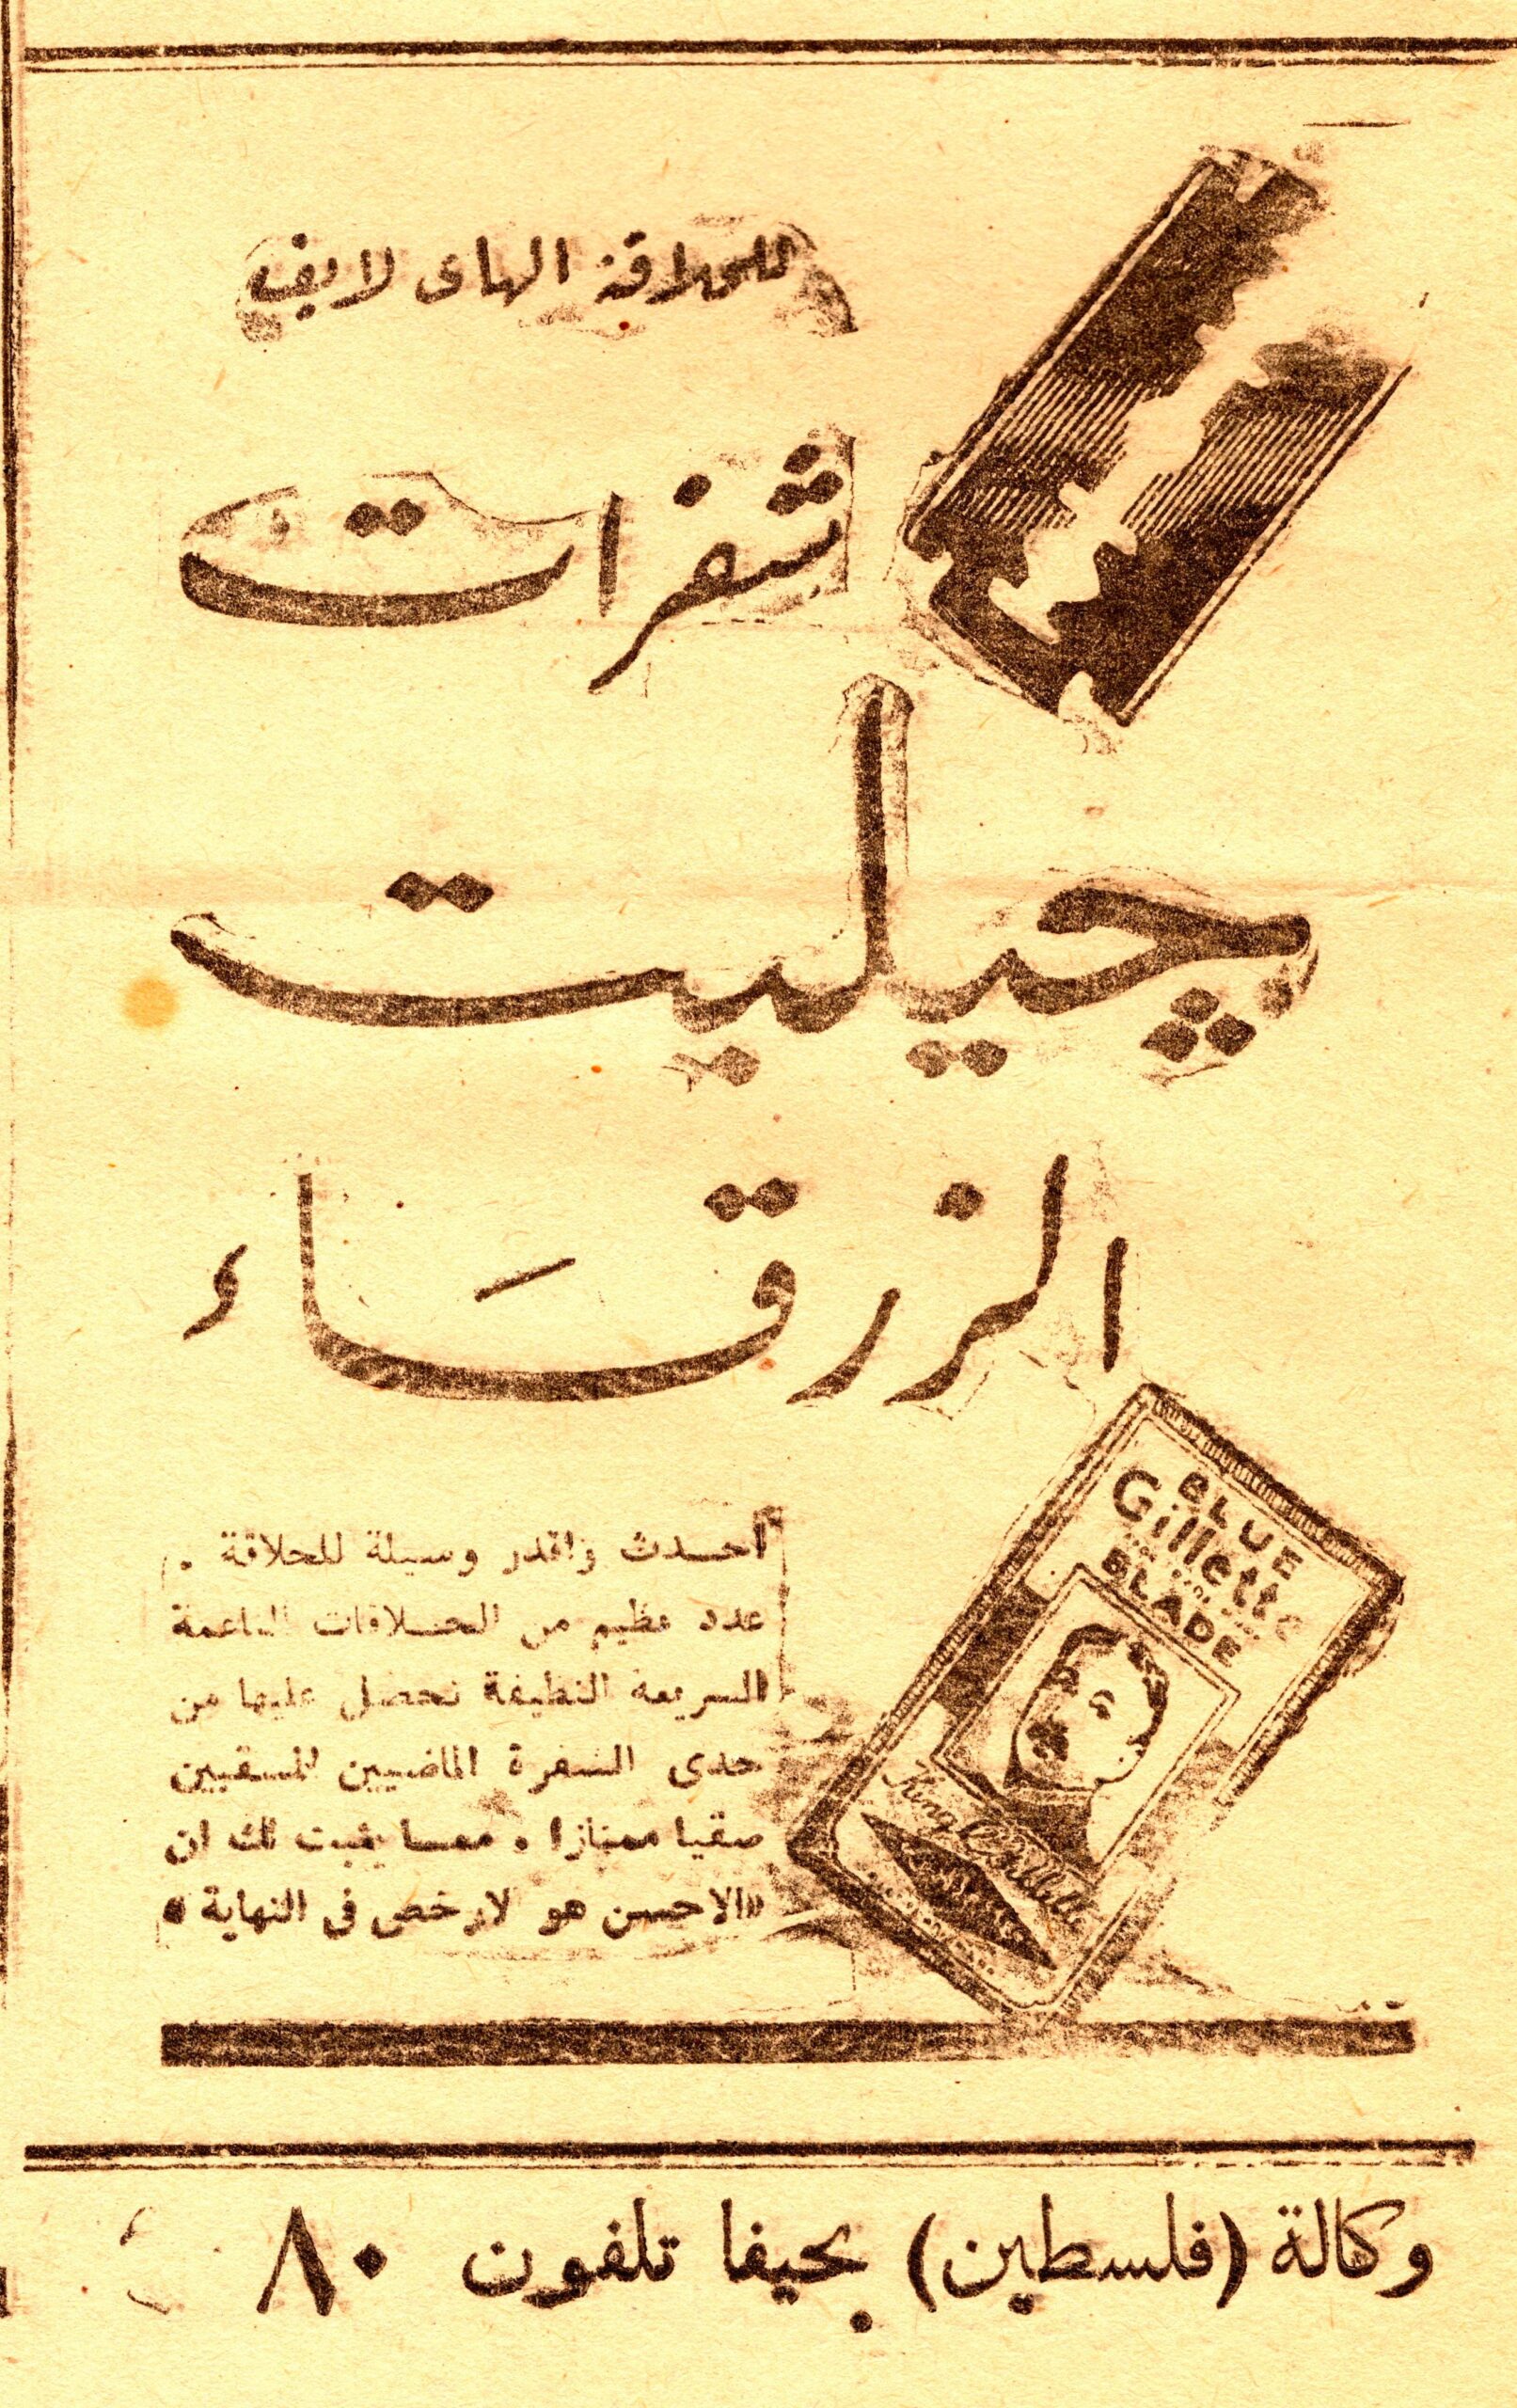 للحلاقة الهاى لايف
شفرات
چيليت
الزرقاء
BLUE
Gillette
BLADE
King Gillette
أحدث واقدر وسيلة للحلاقة .
عدد عظيم من الحلاقات الناعمة
السريعة النظيفة تحصل عليها من
حدى الشفرة الماضيين المسقيين
سقيا ممتازا . مما يثبت لك ان
«الاحسن هو لارخص فى النهاية»
وكالة (فلسطين) بحيفا تلفون ٨٠